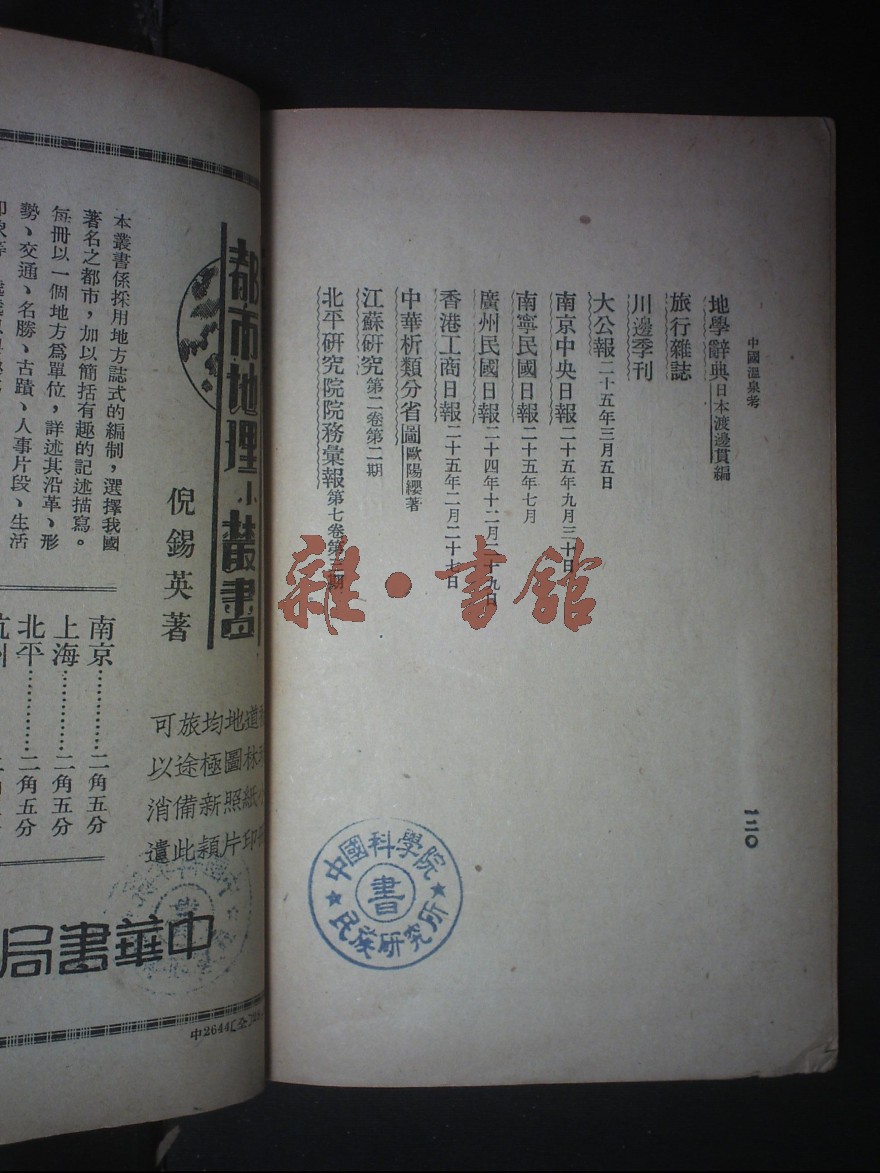 中國溫泉考
地學辭典日本渡邊貫編
旅行雜誌
川邊季刊
大公報二十五年三月五日
南京中央日報二十五年九月三十日
南寧民國日報二十五年七月
廣州民國日報二十四年十二月二十九日
香港工商日報二十五年二月二十七日
中華析類分省圖歐陽纓著
江蘇研究第二卷第二期
北平研究院院務彙報第七卷第三期
一二〇
中國科學院
書
民族研究所
雜·書館
都市地理小叢書
倪錫英著
本叢書係採用地方誌式的編制，選擇我國
著名之都市，加以簡括有趣的記述描寫。
每冊以一個地方爲單位，詳述其沿革、形
勢、交通、名勝、古蹟、人事片段、生活
道林紙印
地圖照片
均極新穎
旅途備此
可以消遣
南京…………二角五分
上海…………二角五分
北平…………二角五分
中華書局
中2644